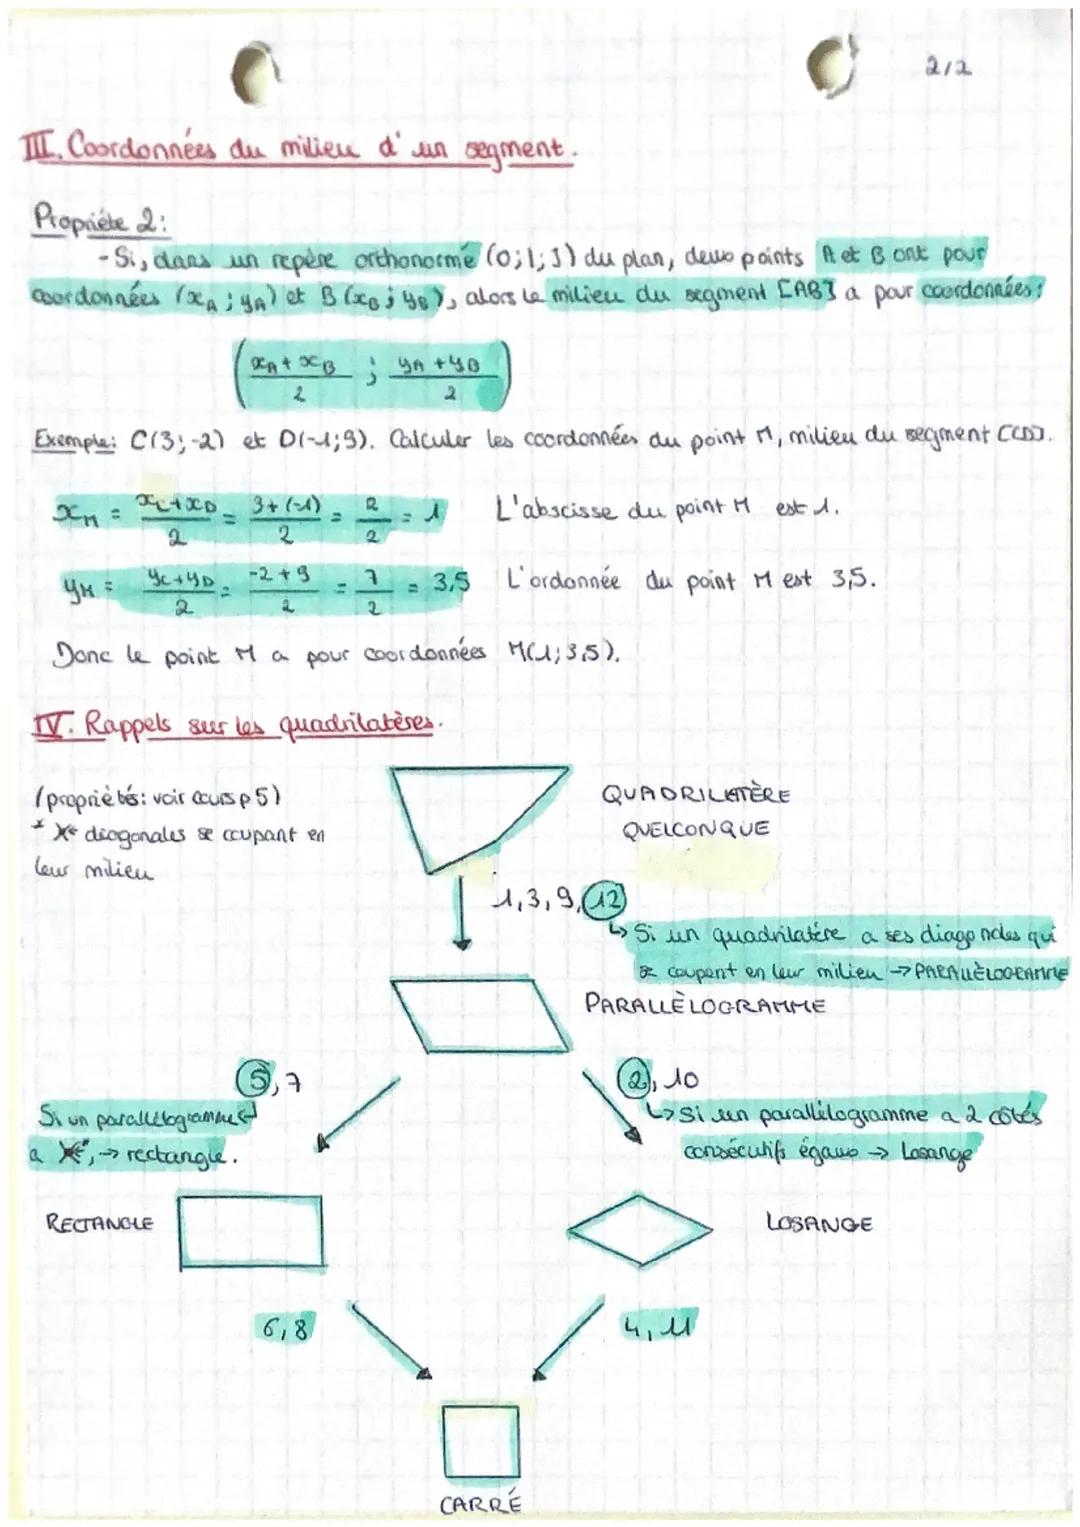 2/2
III. Coordonnées du milieu d'un segment.
Propriéte 2:
- Si, dans un repère orthonormé (O; I; J) du plan, deux points A et B ont pour
coordonnées (xA ; yA) et B (xB ; yB), alors le milieu du segment [AB] a pour coordonnées :
(xA + xB / 2 ; yA + yB / 2)
Exemple: C(3; -2) et D(-1; 9). Calculer les coordonnées du point M, milieu du segment [CD].
xM = xC + xD / 2 = 3 + (-1) / 2 = 2 / 2 = 1 L'abscisse du point M est 1.
yM = yC + yD / 2 = -2 + 9 / 2 = 7 / 2 = 3,5 L'ordonnée du point M est 3,5.
Donc le point M a pour coordonnées M(1; 3,5).
IV. Rappels sur les quadrilatères.
(propriétés: voir cours p 5)
* diagonales se coupant en
leur milieu
QUADRILATÈRE
QUELCONQUE
1, 3, 9, 12
↳ Si un quadrilatère a ses diagonales qui
se coupent en leur milieu → PARALLÈLOGRAMME
PARALLÈLOGRAMME
5, 7
Si un parallélogramme
a *, → rectangle.
2, 10
↳ Si un parallélogramme a 2 côtés
consécutifs égaux → Losange
RECTANGLE
LOSANGE
6, 8
4, 11
CARRÉ